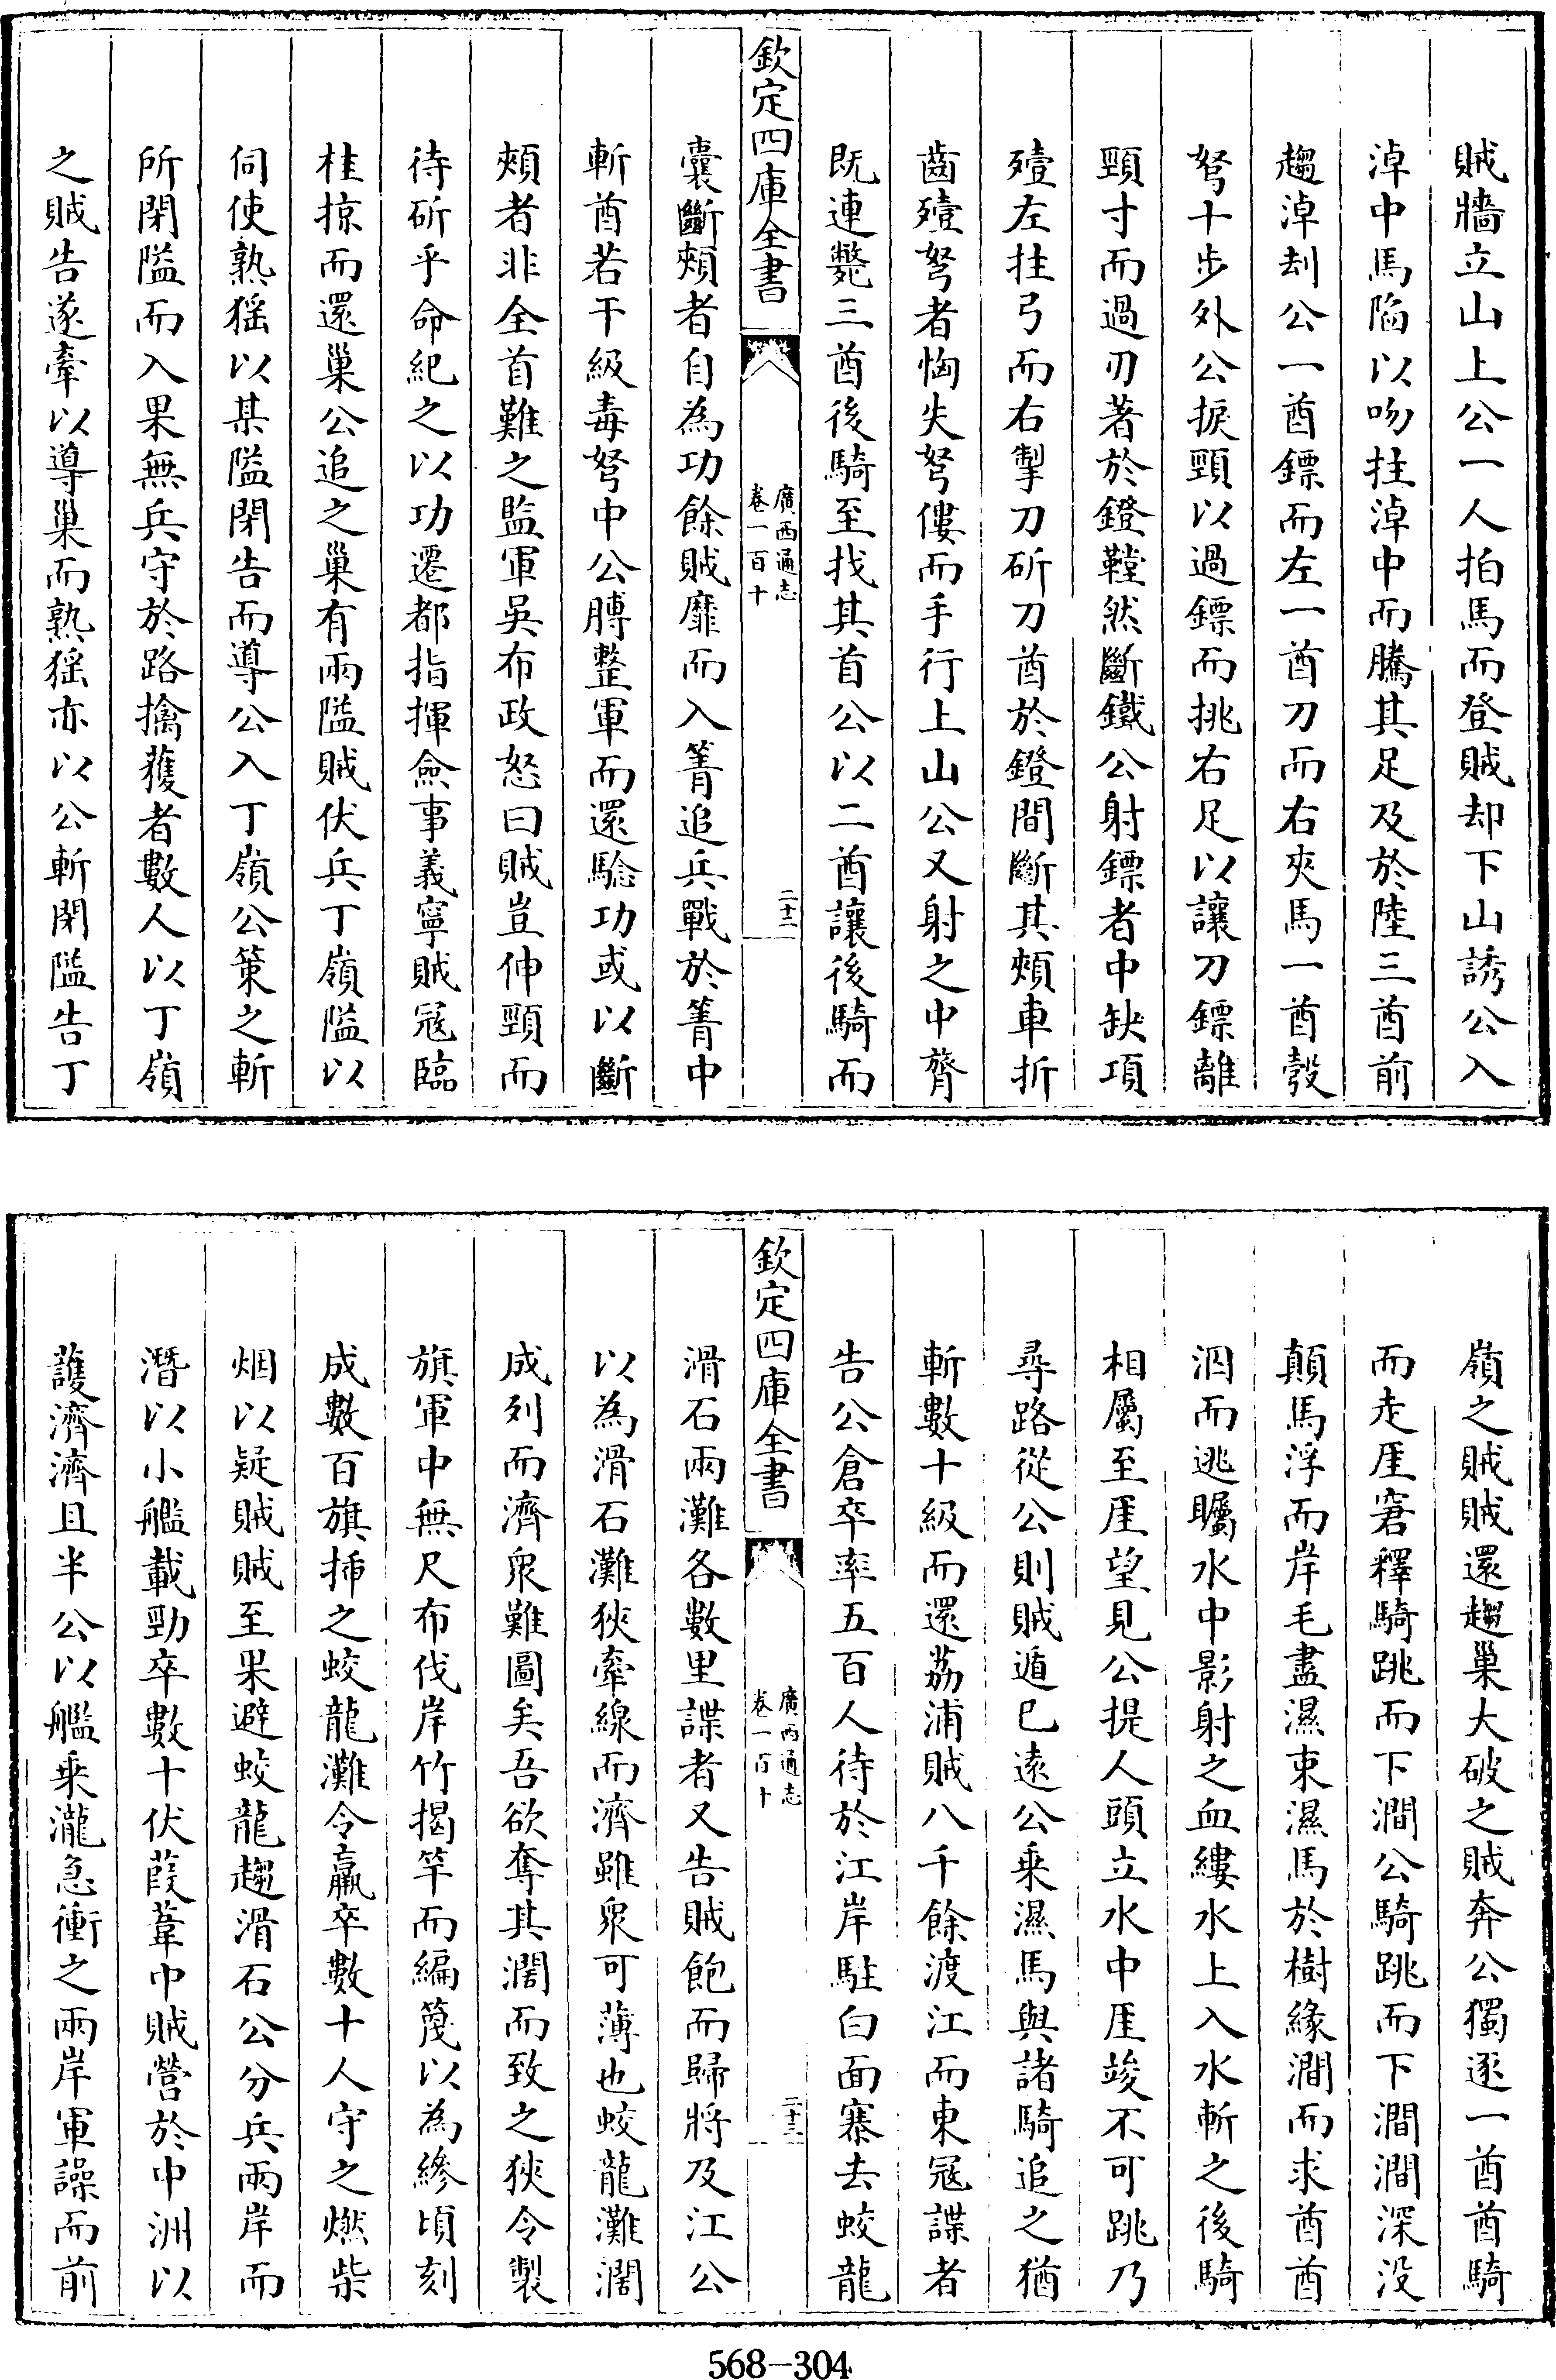 賊牆立山上公一人拍馬而登賊却下山誘公入
淖中馬陷以吻拄淖中而騰其足及於陸三酋前
趨淖刦公一酋鏢而左一酋刀而右夾馬一酋彀
弩十步外公捩頸以過鏢而挑右足以讓刀鏢離
頸寸而過刃著於鐙鞺然斷鐵公射鏢者中缺項
殪左拄弓而右掣刀斫刀酋於鐙間斷其頰車折
齒殪弩者恟失弩僂而手行上山公又射之中膂
既連斃三酋後騎至找其首公以二酋讓後騎而
欽定四庫全書
廣西通志
卷一百十
二十二
囊斷頰者自為功餘賊靡而入箐追兵戰於箐中
斬酋若干級毒弩中公膊整軍而還驗功或以斷
頰者非全首難之監軍吳布政怒曰賊豈伸頸而
待斫乎命紀之以功遷都指揮僉事義寧賊冦臨
桂掠而還巢公追之巢有兩隘賊伏兵丁嶺隘以
伺使熟猺以某隘閉告而導公入丁嶺公策之斬
所閉隘而入果無兵守於路擒獲者數人以丁嶺
之賊告遂牽以導巢而熟猺亦以公斬閉隘告丁
嶺之賊賊還趨巢大破之賊奔公獨逐一酋酋騎
而走厓窘釋騎跳而下澗公騎跳而下澗澗深没
顛馬浮而岸毛盡濕束濕馬於樹緣澗而求酋酋
泅而逃矚水中影射之血縷水上入水斬之後騎
相屬至厓望見公提人頭立水中厓竣不可跳乃
尋路從公則賊遁已遠公乗濕馬與諸騎追之猶
斬數十級而還荔浦賊八千餘渡江而東冦諜者
告公倉卒率五百人待於江岸駐白面寨去蛟龍
欽定四庫全書
廣西通志
卷一百十
二十三
滑石兩灘各數里諜者又告賊飽而歸將及江公
以為滑石灘狹牽線而濟雖衆可薄也蛟龍灘濶
成列而濟衆難圖矣吾欲奪其濶而致之狹令製
旗軍中無尺布伐岸竹揭竿而編篾以為縿頃刻
成數百旗挿之蛟龍灘令羸卒數十人守之燃柴
烟以疑賊賊至果避蛟龍趨滑石公分兵兩岸而
潛以小艦載勁卒數十伏葭葦中賊營於中洲以
護濟濟且半公以艦乗瀧急衝之兩岸軍譟而前
568-304